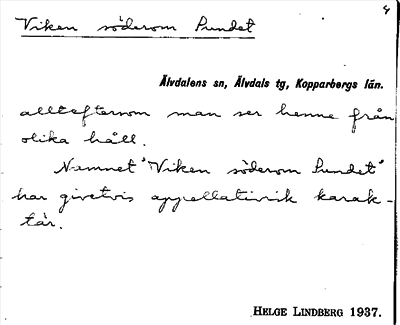 4
Viken söderom Sundet
Älvdalens sn, Älvdals tg, Kopparbergs län.
alltefternom man ser henne från
olika håll.
Namnet "Viken söderom Sundet"
har givetvis appellativisk karak-
tär.
HELGE LINDBERG 1937.